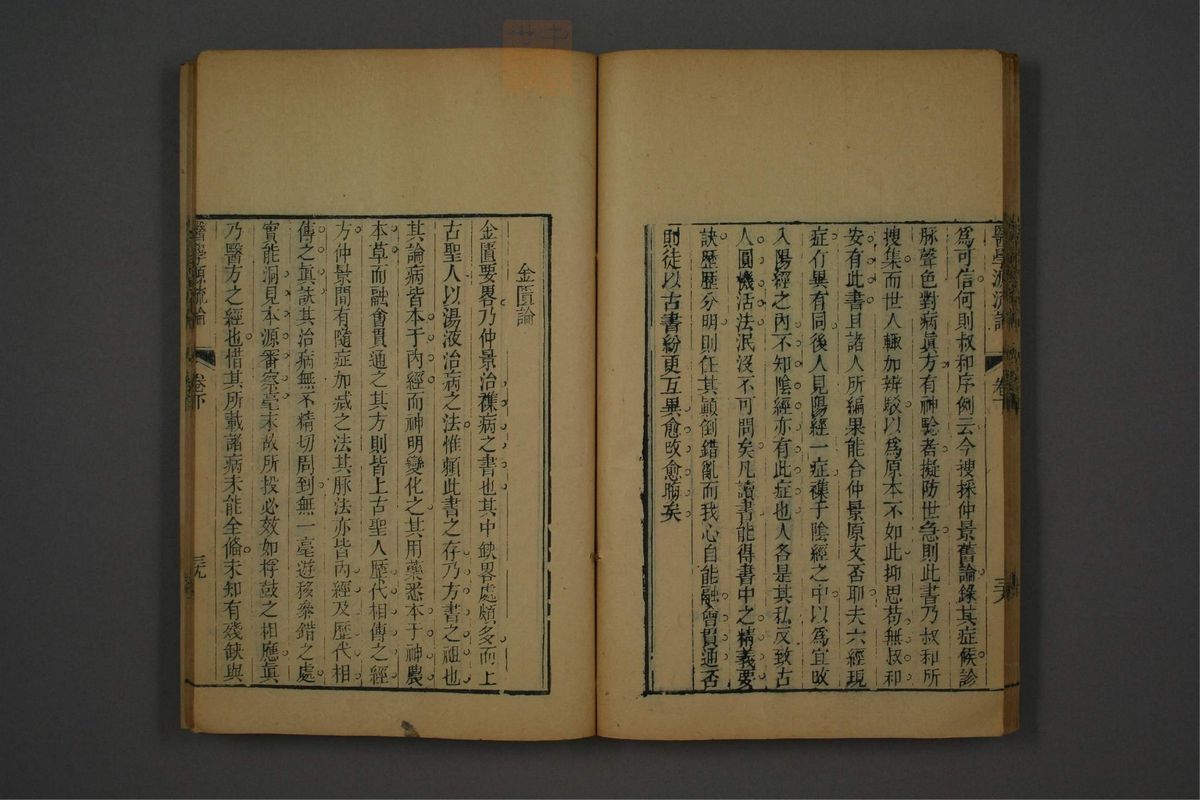 醫學源流論
卷下
三八
爲可信何則叔和序例云今搜採仲景舊論錄其症候診
脉聲色對病眞方有神騐者擬防世急則此書乃叔和所
搜集而世人輙加辨駁以爲原本不如此抑思苟無叔和
安有此書且諸人所編果能合仲景原文否耶夫六經現
症有異有同後人見陽經一症襍于陰經之中以爲宜改
入陽經之內不知陰經亦有此症也人各是其私反致古
人圓機活法泯沒不可問矣凡讀書能得書中之精義要
訣歷歷分明則任其顚倒錯亂而我心自能融會貫通否
則徒以古書紛更互異愈改愈晦矣
金匱論
金匱要畧乃仲景治襍病之書也其中缺畧處頗多而上
古聖人以湯液治病之法惟賴此書之存乃方書之祖也
其論病皆本于內經而神明變化之其用藥悉本于神農
本草而融會貫通之其方則皆上古聖人歷代相傳之經
方仲景間有隨症加减之法其脉法亦皆內經及歷代相
傳之眞訣其治病無不精切周到無一毫遊移叅錯之處
實能洞見本源審察毫末故所投必效如桴鼓之相應眞
乃醫方之經也惜其所載諸病未能全備未知有殘缺與
醫學源流論
卷下
三九